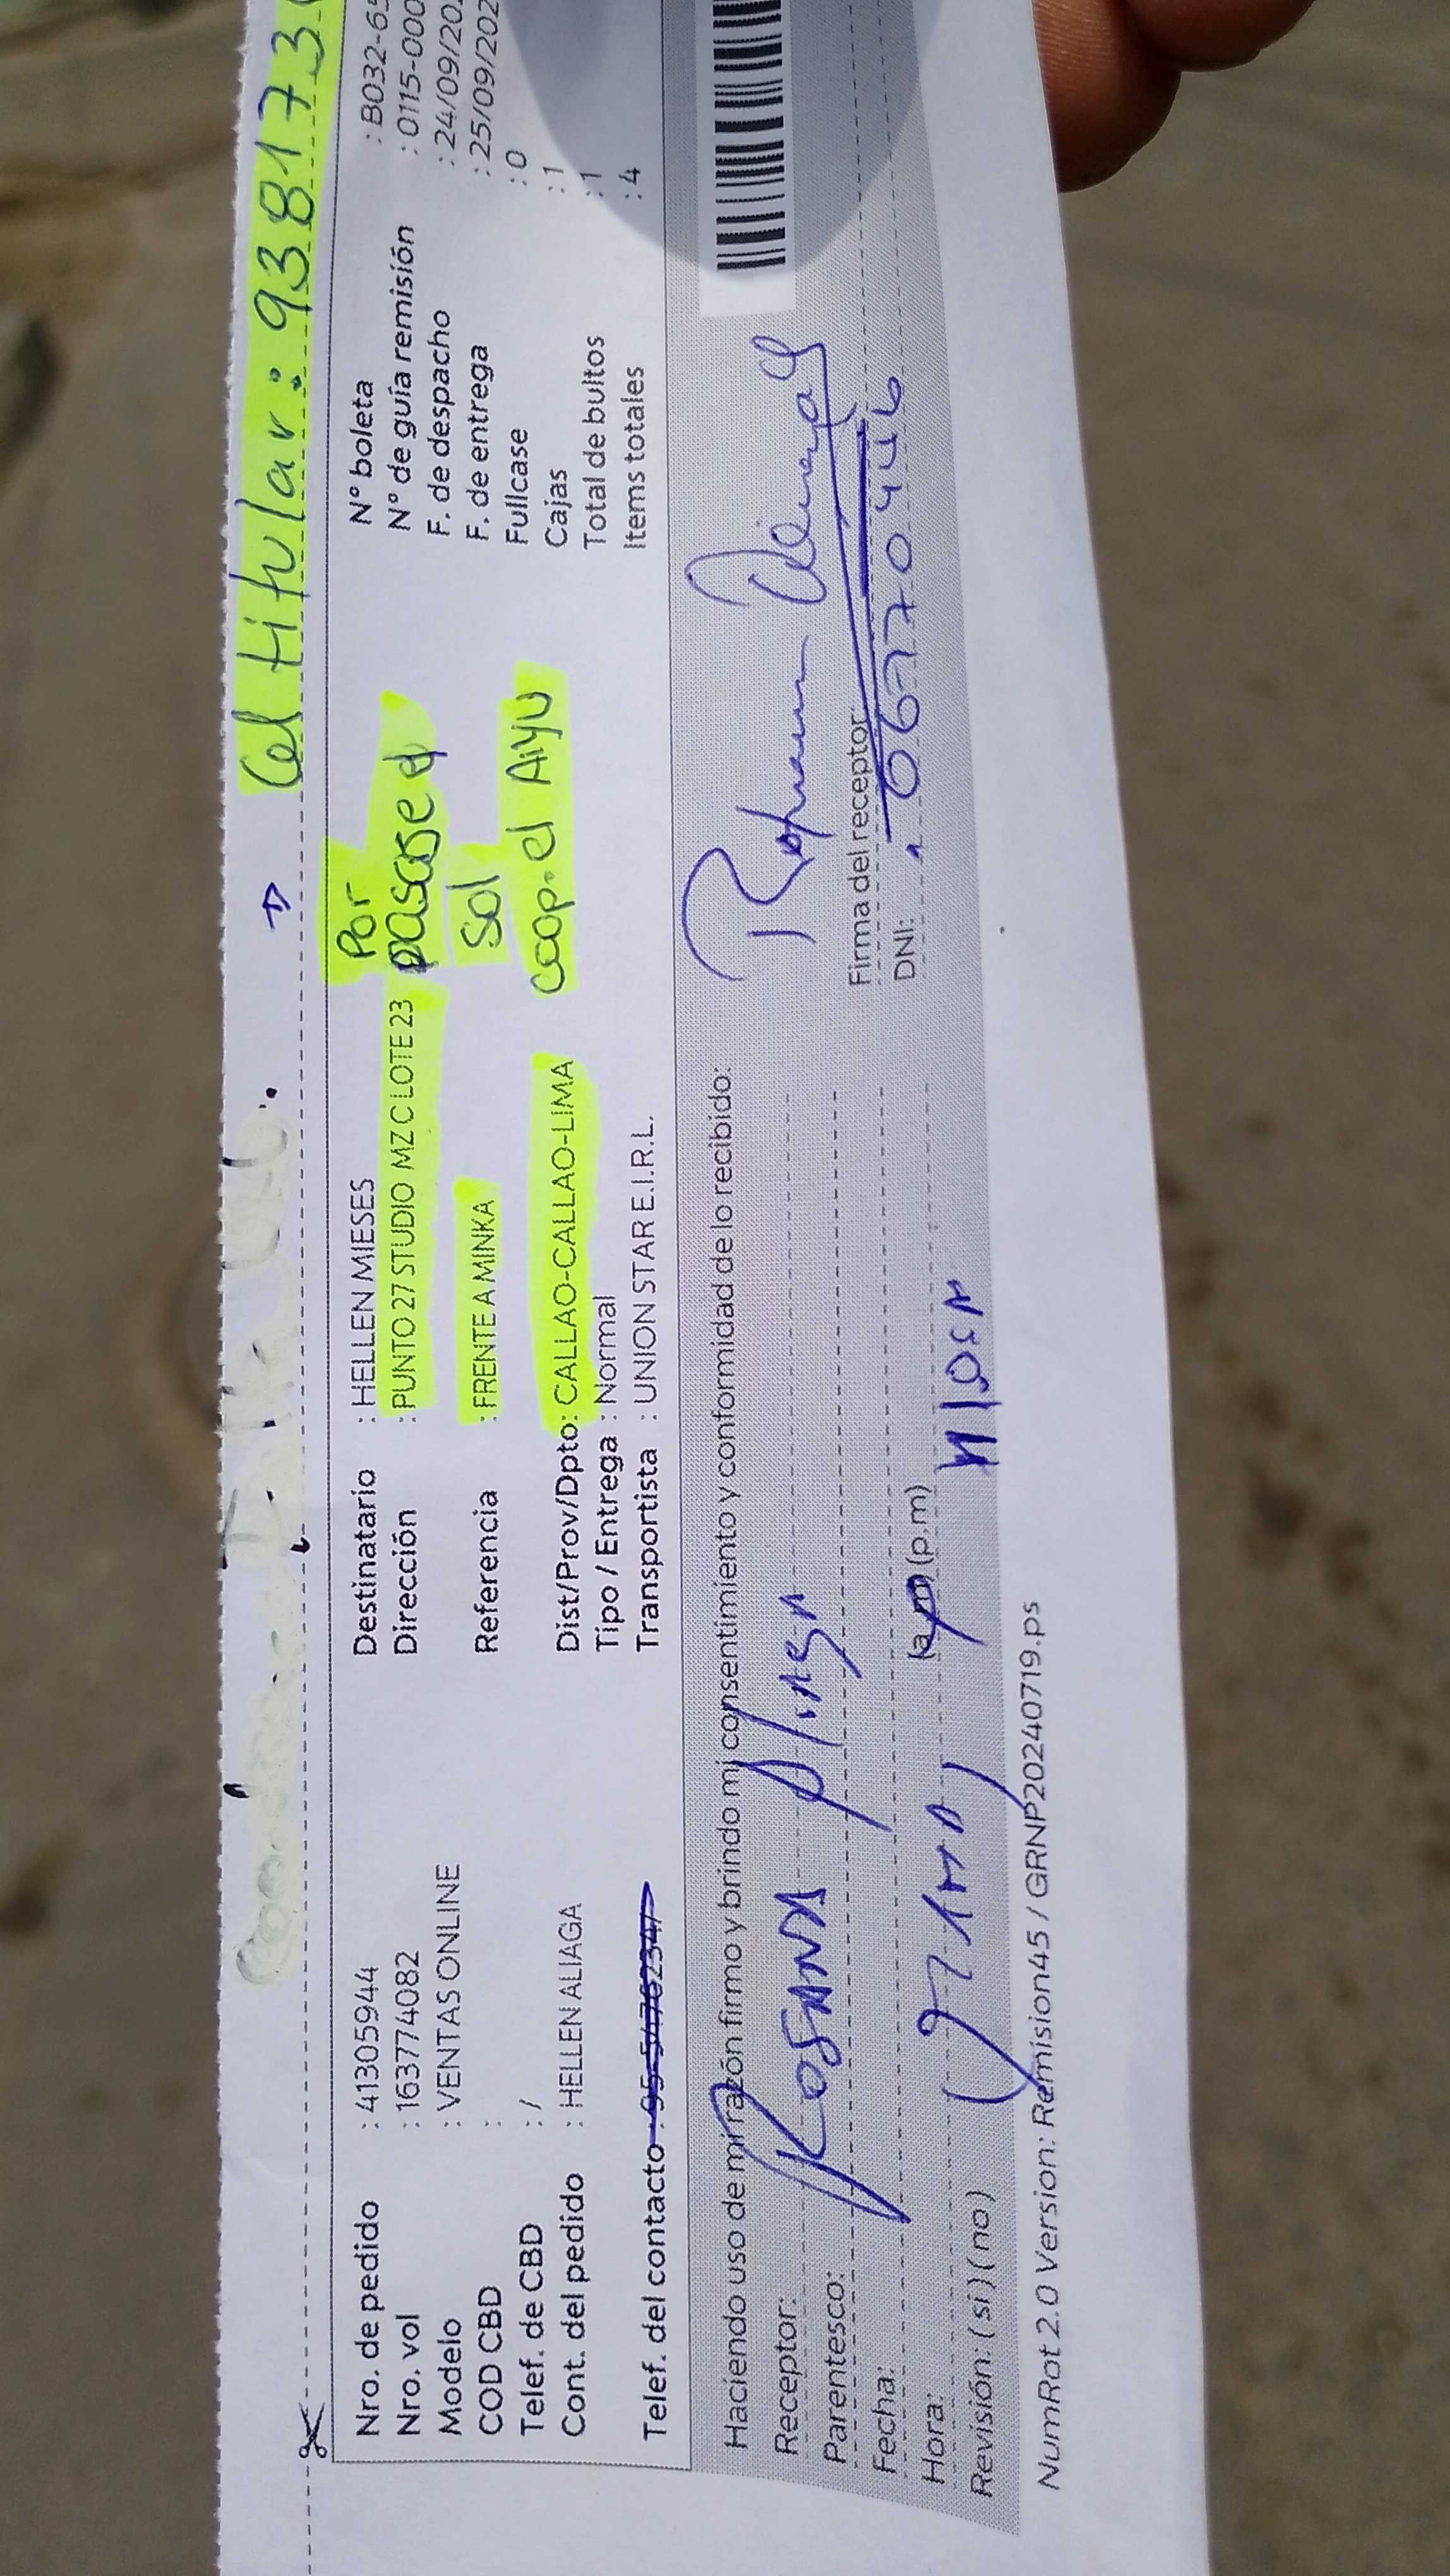 → Cel titular: 938173
Nro. de pedido : 41305944
Nro. vol : 163774082
Modelo : VENTAS ONLINE
COD CBD :
Telef. de CBD : /
Cont. del pedido : HELLEN ALIAGA
Telef. del contacto :
Destinatario : HELLEN MIESES
Dirección : PUNTO 27 STUDIO MZ C LOTE 23
Referencia : FRENTE A MINKA
Dist/Prov/Dpto: CALLAO-CALLAO-LIMA
Tipo / Entrega : Normal
Transportista : UNION STAR E.I.R.L.
Por
pasase el
Sol
coop. el AiYU
N° boleta : B032-65
N° de guía remisión : 0115-000
F. de despacho : 24/09/202
F. de entrega : 25/09/202
Fullcase : 0
Cajas : 1
Total de bultos : 1
Items totales : 4
Haciendo uso de mi razón firmo y brindo mi consentimiento y conformidad de lo recibido:
Receptor: ROSANA Aliaga
Parentesco:
Fecha:
Hora: (a.m)(p.m)
Revisión: (si) (no)
Firma del receptor
DNI: 06770446
NumRot 2.0 Version: Remision45 / GRNP20240719.ps